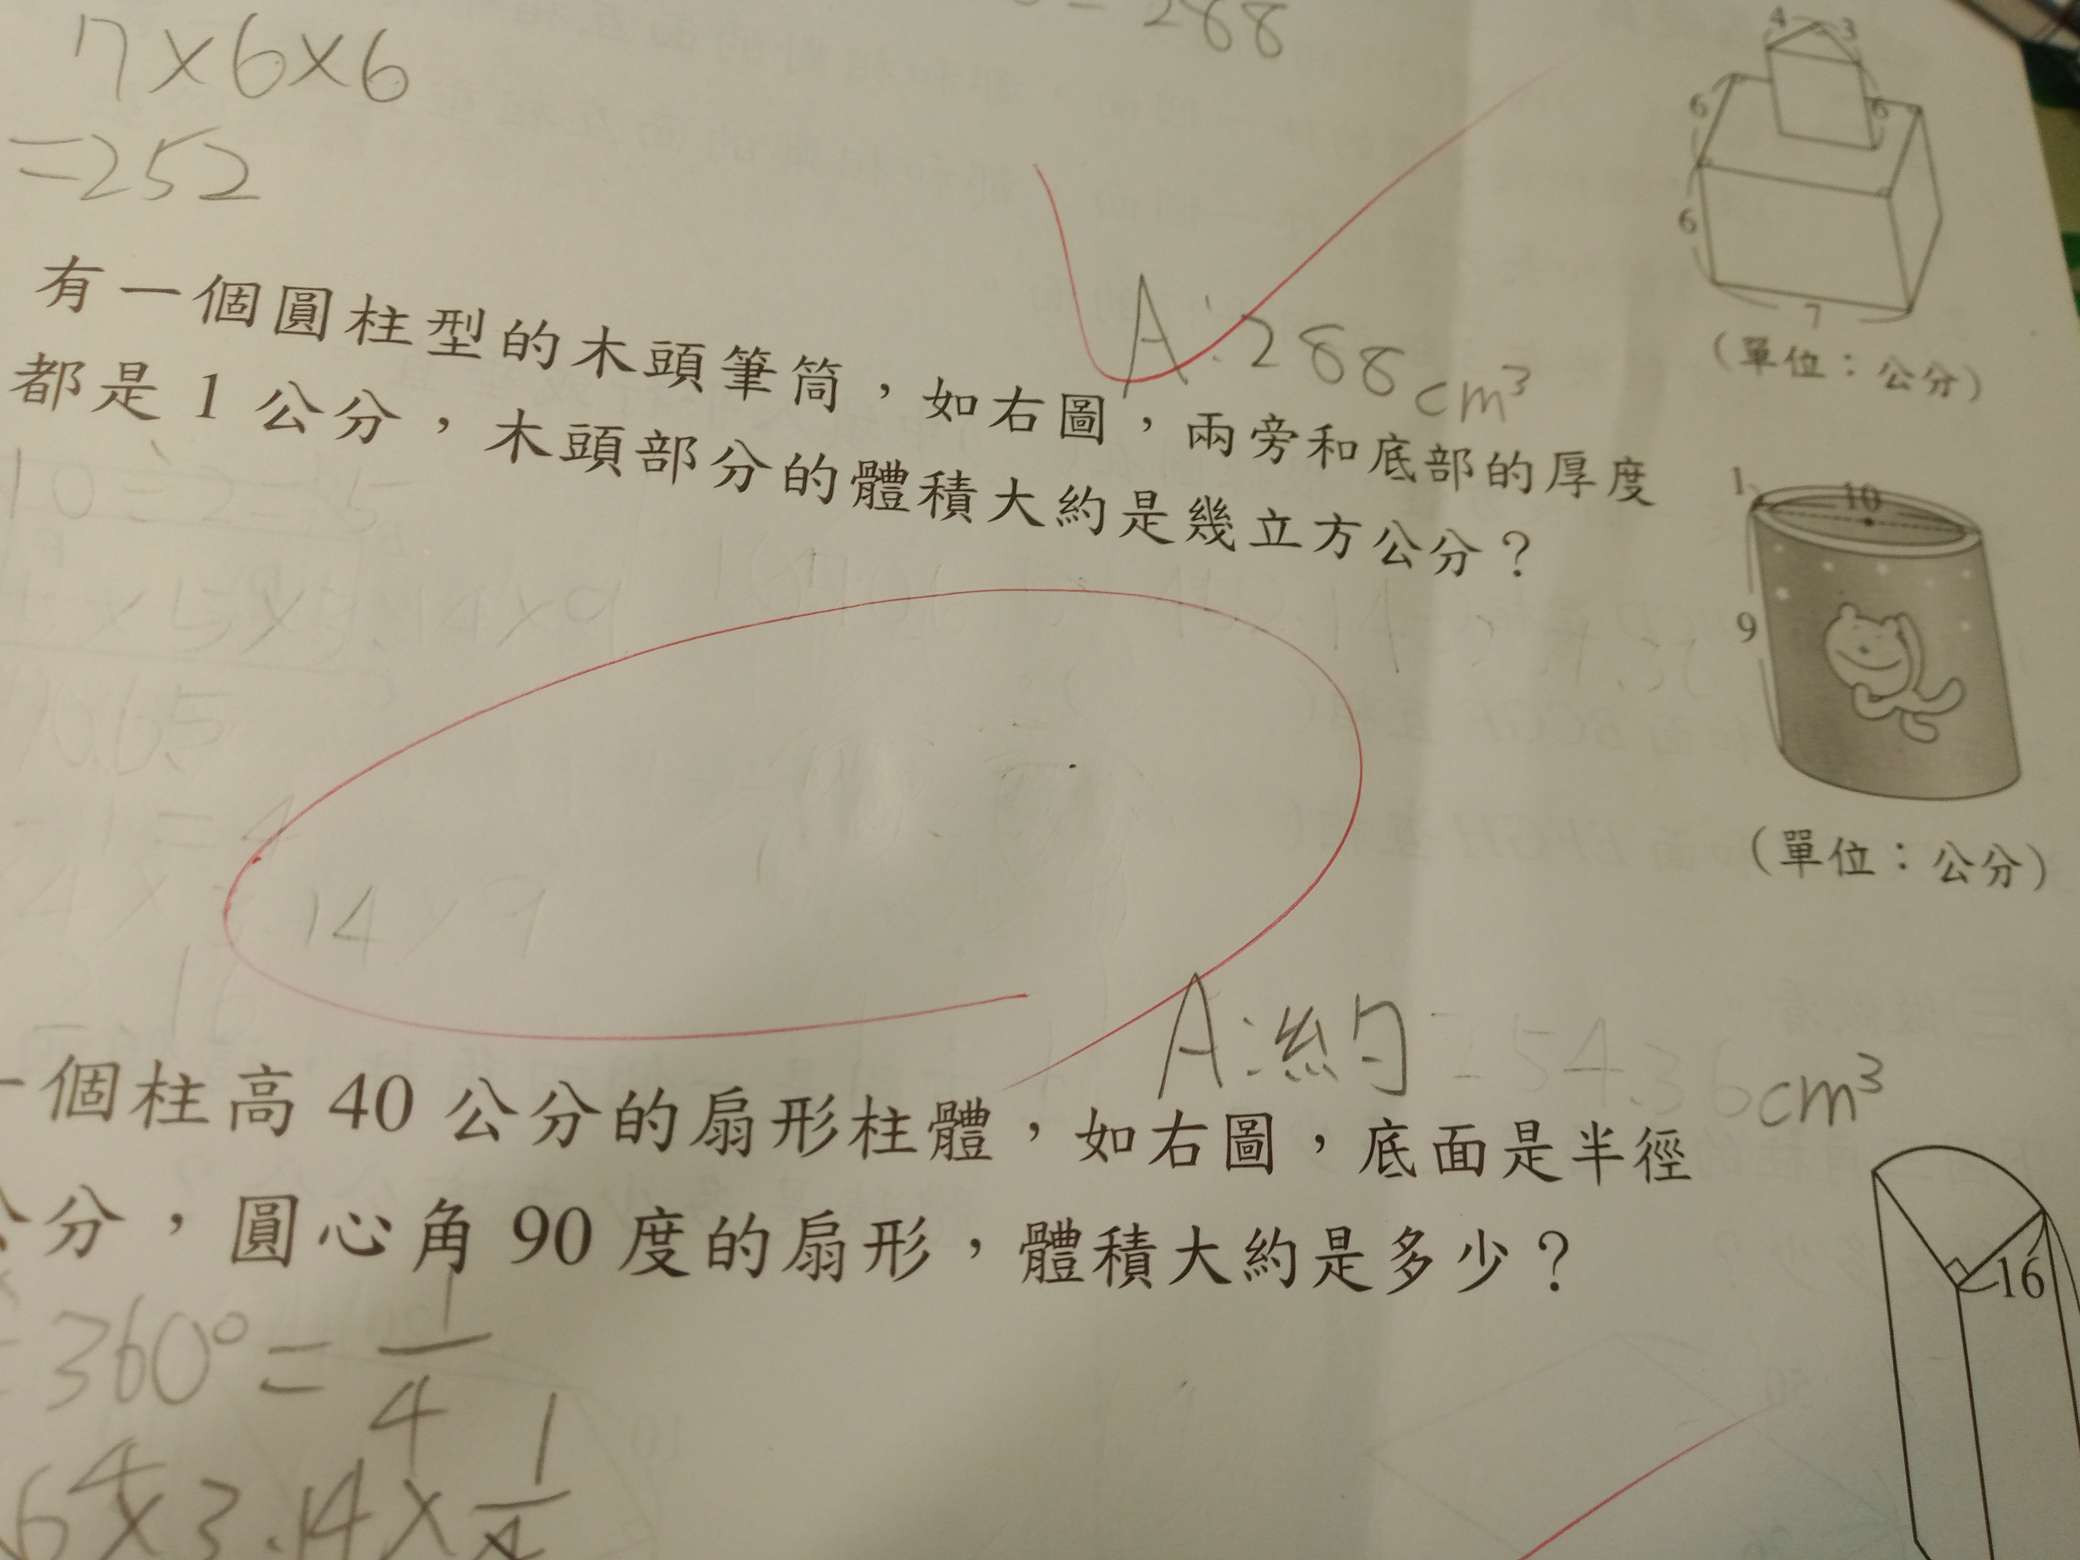 7×6×6
=252
288
4 3
6 6
6
7
(單位：公分)
A:288cm³
有一個圓柱型的木頭筆筒，如右圖，兩旁和底部的厚度
都是1公分，木頭部分的體積大約是幾立方公分？
1 10
9
(單位：公分)
10÷2=5
14×9
A:約254.36cm³
一個柱高40公分的扇形柱體，如右圖，底面是半徑
公分，圓心角90度的扇形，體積大約是多少？
16
360°=1/4
×3.14×1/4